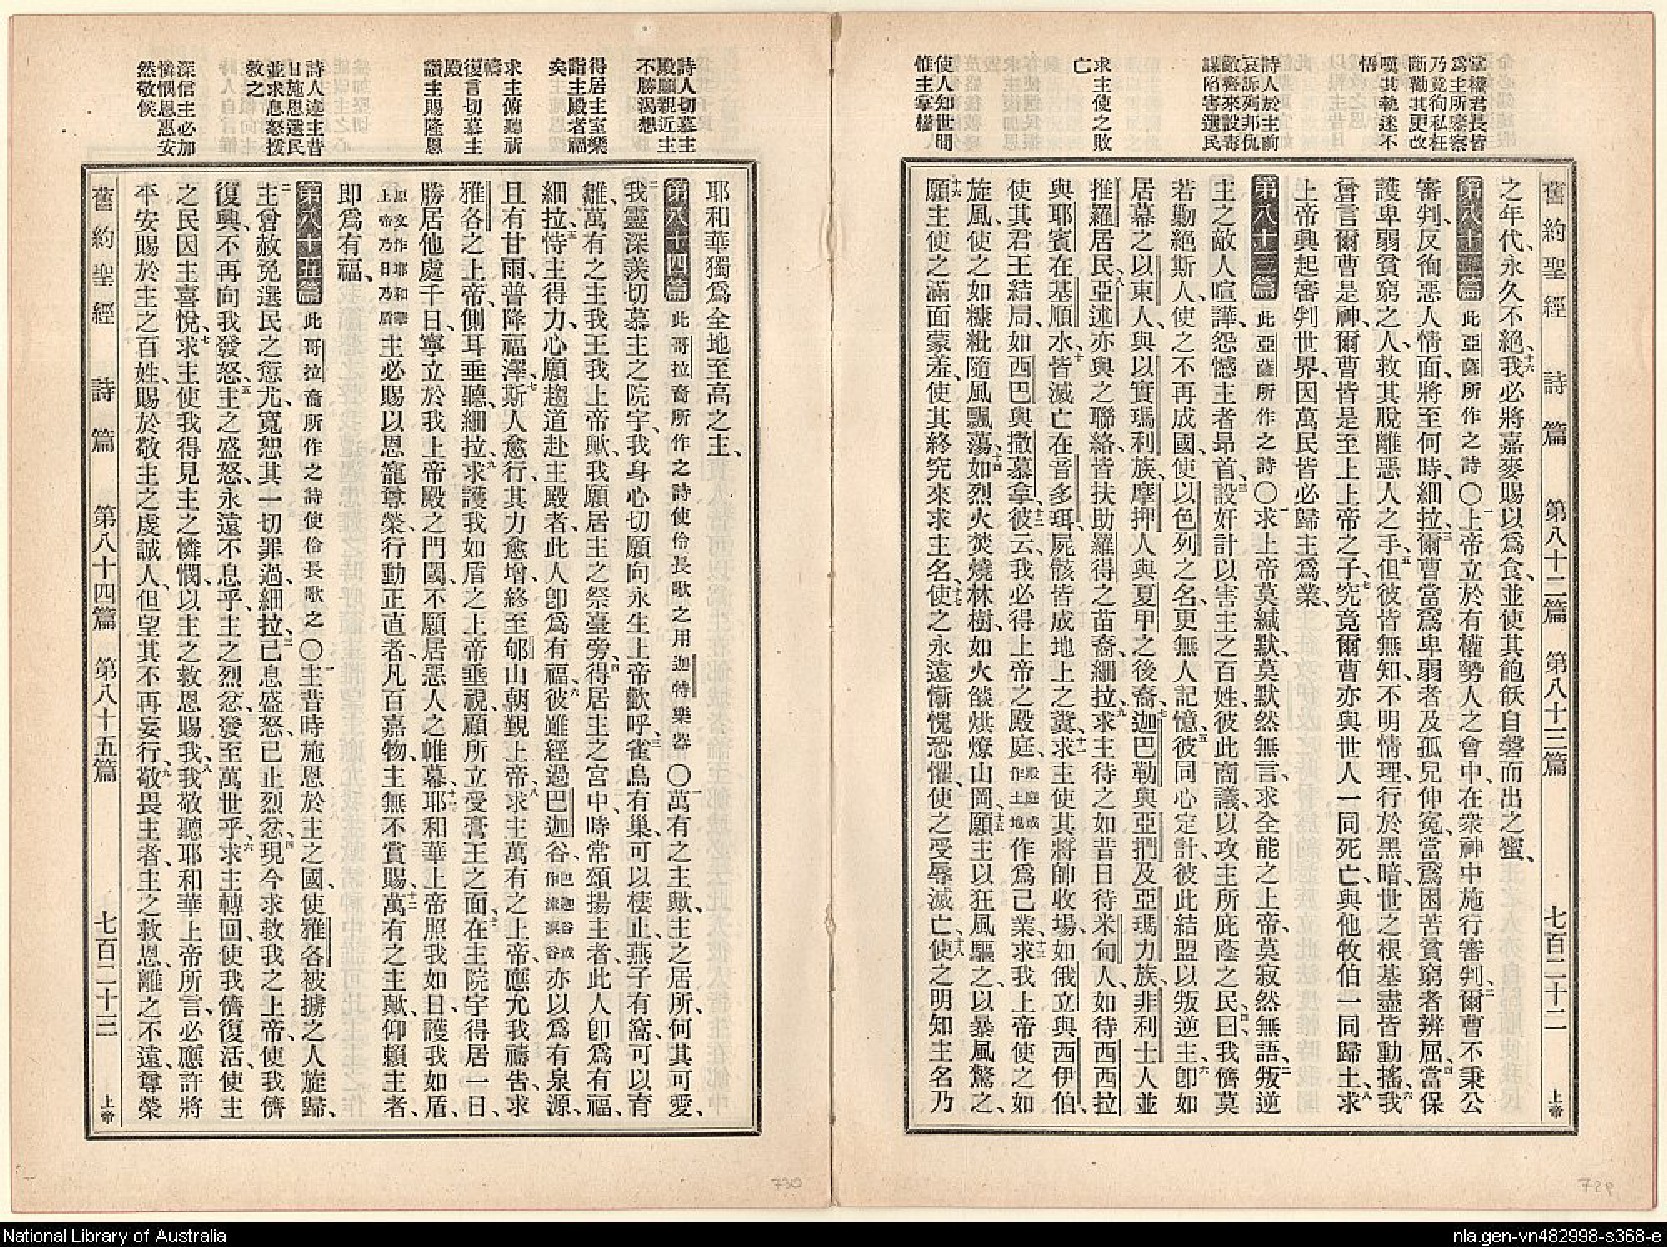 舊約聖經　詩篇　第八十二篇　第八十三篇　七百二十二　上帝
掌權君長皆
爲主所鑒察
乃竟徇私枉
斷勸其更改
嘆其執迷不
悟
詩人於主前
哀訴列邦仇
敵齊來設謀
謀陷害選民
求主使之敗
亡
使人知世間
惟主掌權
之年代、永久不絕、十六我必將嘉麥賜以爲食、並使其飽飫自磐而出之蜜、
第八十二篇 此亞薩所作之詩〇一上帝立於有權勢人之會中、在衆神中施行審判、二爾曹不秉公
審判、反徇惡人情面、將至何時、細拉、三爾曹當爲卑弱者及孤兒伸寃、當爲困苦貧窮者辨屈、四當保
護卑弱貧窮之人、救其脫離惡人之手、五但彼皆無知、不明情理、行於黑暗、世之根基盡皆動搖、六我
嘗言爾曹是神、爾曹皆是至上上帝之子、七究竟爾曹亦與世人一同死亡、與他牧伯一同歸土、八求
上帝興起、審判世界、因萬民皆必歸主爲業、
第八十三篇 此亞薩所作之詩〇一求上帝莫緘默、莫默然無言、求全能之上帝、莫寂然無語、二叛逆
主之敵人喧譁、怨憾主者昂首、三設奸計以害主之百姓、彼此商議、以攻主所庇蔭之民、四曰、我儕莫
若勦絕斯人、使之不再成國、使以色列之名、更無人記憶、五彼同心定計、彼此結盟、以叛逆主、六卽如
居幕之以東人、與以實瑪利族、摩押人與夏甲之後裔、七迦巴勒與亞捫及亞瑪力族、非利士人並
推羅居民、八亞述亦與之聯絡、皆扶助羅得之苗裔、細拉、九求主待之如昔日待米甸人、如待西西拉
與耶賓在基順水、十皆滅亡在音多珥、屍骸皆成地上之糞、十一求主使其將帥收場、如俄立與西伊伯、
使其君王結局、如西巴與撒慕拿、十二彼云、我必得上帝之殿庭、殿庭或作土地作爲己業、十三求我上帝使之如
旋風、使之如糠粃隨風飄蕩、十四如烈火焚燒林樹、如火燄烘燎山岡、十五願主以狂風驅之、以暴風驚之、
十六願主使之滿面蒙羞、使其終究來求主名、十七使之永遠慚愧恐懼、使之受辱滅亡、十八使之明知主名乃
詩人切慕主
殿願親近主
不勝渴想
得居主室樂
詣主殿者福
矣
求主俯聽祈
禱
復言切慕主
殿
謂主賜隆恩
詩人述主昔
日施恩選民
並求息怒拯
救之
深信主必加
憐憫恩惠安
然敬候
耶和華、獨爲全地至高之主、
第八十四篇 此哥拉裔所作之詩使伶長歌之用迦特樂器〇一萬有之主歟、主之居所、何其可愛、
二我靈深羨切慕主之院宇、我身心切願向永生上帝歡呼、三雀鳥有巢、可以棲止、燕子有窩、可以育
雛、萬有之主、我王我上帝歟、我願居主之祭臺旁、四得居主之宮中、時常頌揚主者、此人卽爲有福、
細拉、五恃主得力、心願趨道赴主殿者、此人卽爲有福、六彼雖經過巴迦谷、巴迦谷或作流淚谷亦以爲有泉源、
且有甘雨、普降福澤、七斯人愈行、其力愈增、終至郇山、朝覲上帝、八求主萬有之上帝、應允我禱吿、求
雅各之上帝、側耳垂聽、細拉、九求護我如盾之上帝垂視、顧所立受膏王之面、十在主院宇得居一日、
勝居他處千日、寧立於我上帝殿之門閾、不願居惡人之帷幕、十一耶和華上帝照我如日、護我如盾、
原文作耶和華上帝乃日乃盾主必賜以恩寵尊榮、行動正直者、凡百嘉物、主無不賞賜、十二萬有之主歟、仰賴主者、
卽爲有福、
第八十五篇 此哥拉裔所作之詩使伶長歌之〇一主昔時施恩於主之國、使雅各被擄之人旋歸、
二主曾赦免選民之愆尤、寬恕其一切罪過、細拉、三已息盛怒、已止烈忿、四現今求救我之上帝、使我儕
復興、不再向我發怒、五主之盛怒、永遠不息乎、主之烈忿、發至萬世乎、六求主轉回、使我儕復活、使主
之民因主喜悅、七求主使我得見主之憐憫、以主之救恩賜我、八我敬聽耶和華上帝所言、必應許將
平安賜於主之百姓、賜於敬主之虔誠人、但望其不再妄行、九敬畏主者、主之救恩、離之不遠、尊榮
舊約聖經　詩篇　第八十四篇　第八十五篇　七百二十三　上帝
730
729
National Library of Australia
nla.gen-vn482998-s368-e